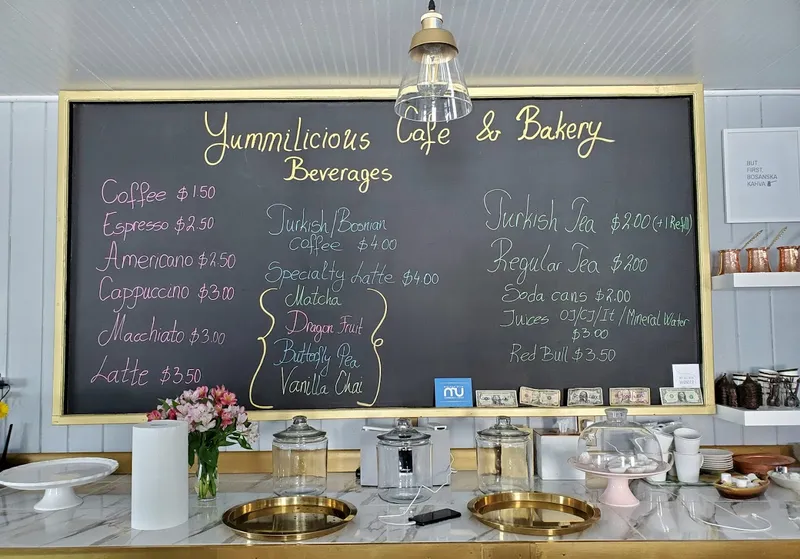 Yummilicious Cafe & Bakery
Beverages
Coffee $1.50
Espresso $2.50
Americano $2.50
Cappuccino $3.00
Macchiato $3.00
Latte $3.50
Turkish/Bosnian
coffee $4.00
Specialty Latte $4.00
Matcha
Dragon Fruit
Butterfly Pea
Vanilla Chai
Turkish Tea $2.00 (+1 Refill)
Regular Tea $2.00
Soda cans $2.00
Juices OJ/CJ/It/Mineral Water
$3.00
Red Bull $3.50
BUT
FIRST,
BOSANSKA
KAHVA